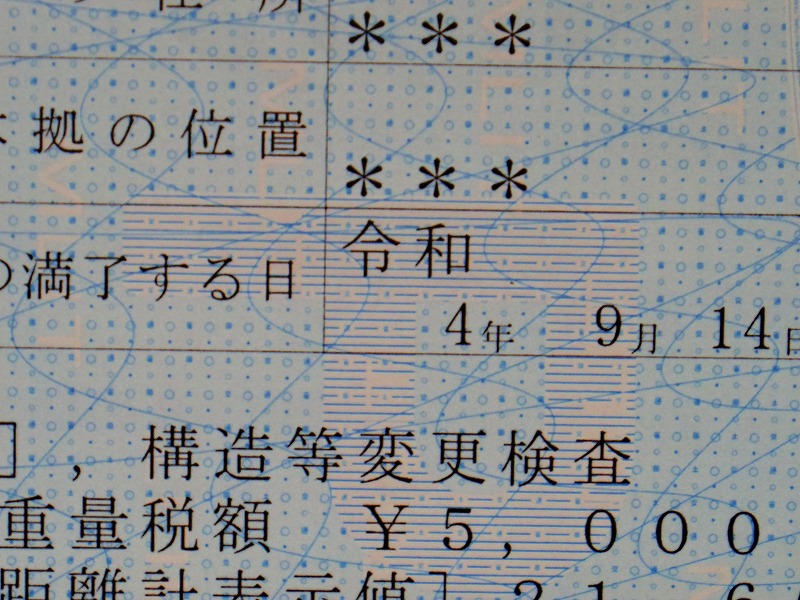 住所
***
拠の位置
***
の満了する日
令和
4年 9月 14日
], 構造等変更検査
重量税額 ¥5,000
距離計表示値] 21